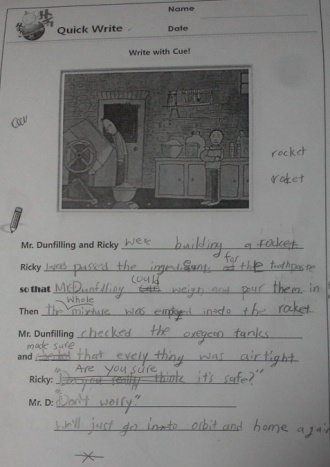 Name
Quick Write
Date
Write with Cue!
rocket
roket
Mr. Dunfilling and Ricky wer building a rocket
for
Ricky passed the the toothpaste
could
so that Mr.Dunfilling weigh and pour them in
whole
Then the mixture was emptyed inato the rocket
Mr. Dunfilling checked the oxegean tanks
made sure
and that every thing was air tight
Are you sure
Ricky: "Do you really think it's safe?"
Mr. D: "Don't worry"
We'll just go inato orbit and home again